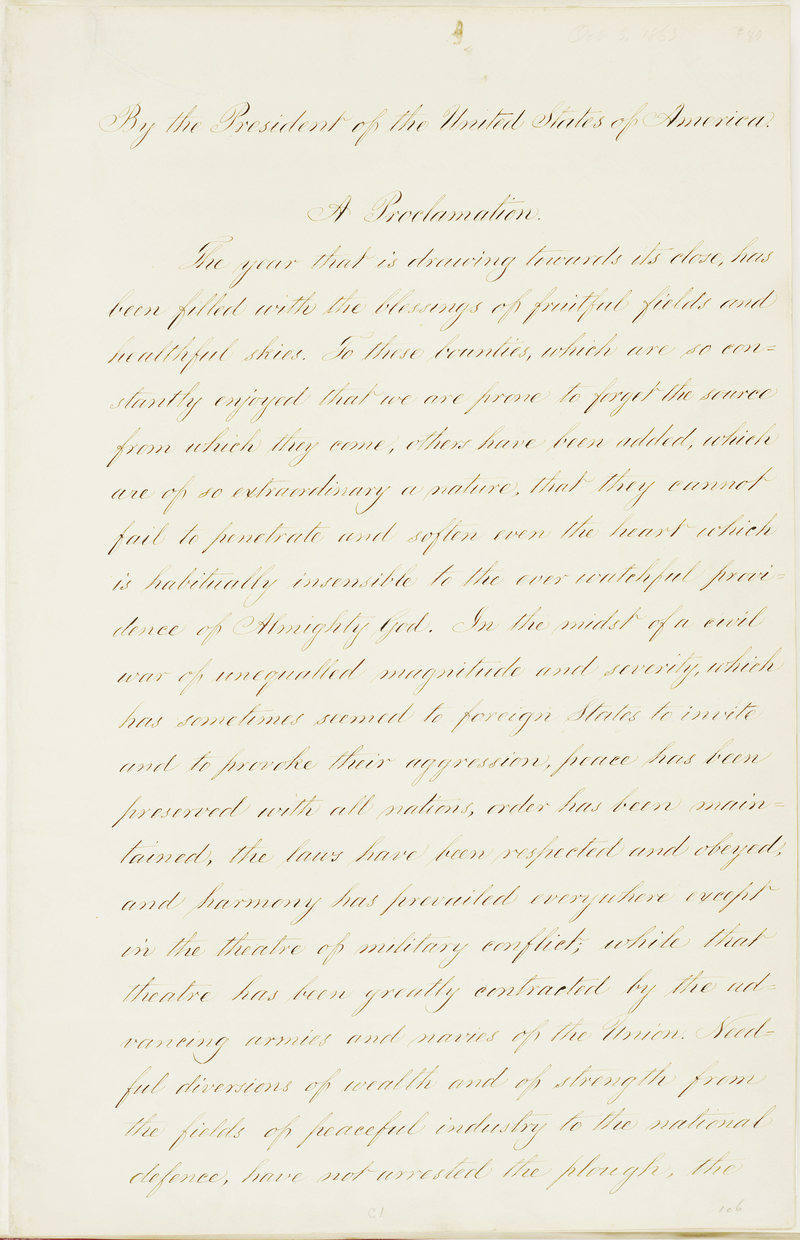 Oct 3, 1863
By the President of the United States of America.
A Proclamation.
The year that is drawing towards its close, has
been filled with the blessings of fruitful fields and
healthful skies. To these bounties, which are so con=
stantly enjoyed that we are prone to forget the source
from which they come, others have been added, which
are of so extraordinary a nature, that they cannot
fail to penetrate and soften even the heart which
is habitually insensible to the ever watchful provi=
dence of Almighty God. In the midst of a civil
war of unequalled magnitude and severity, which
has sometimes seemed to foreign States to invite
and to provoke their aggression, peace has been
preserved with all nations, order has been main=
tained, the laws have been respected and obeyed,
and harmony has prevailed everywhere except
in the theatre of military conflict; while that
theatre has been greatly contracted by the ad=
vancing armies and navies of the Union. Need=
ful diversions of wealth and of strength from
the fields of peaceful industry to the national
defence, have not arrested the plough, the
C1
106